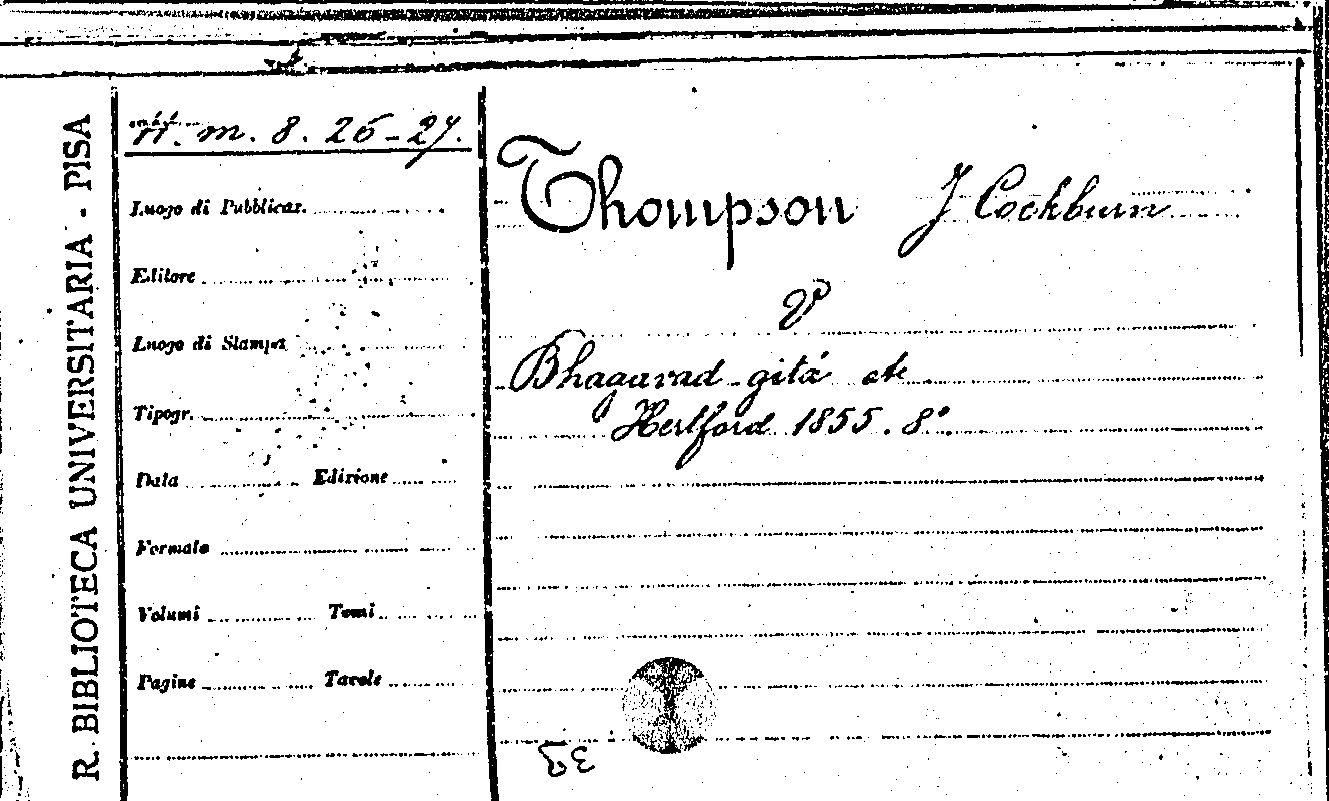 R. BIBLIOTECA UNIVERSITARIA - PISA
m. 8. 26-27.
Luogo di Pubblicaz.
Editore
Luogo di Stampa
Tipogr.
Data Edizione
Formato
Volumi Tomi
Pagine Tavole
Thompson J Cockburn
V
Bhagavad-gitá etc
Hertford 1855. 8°.